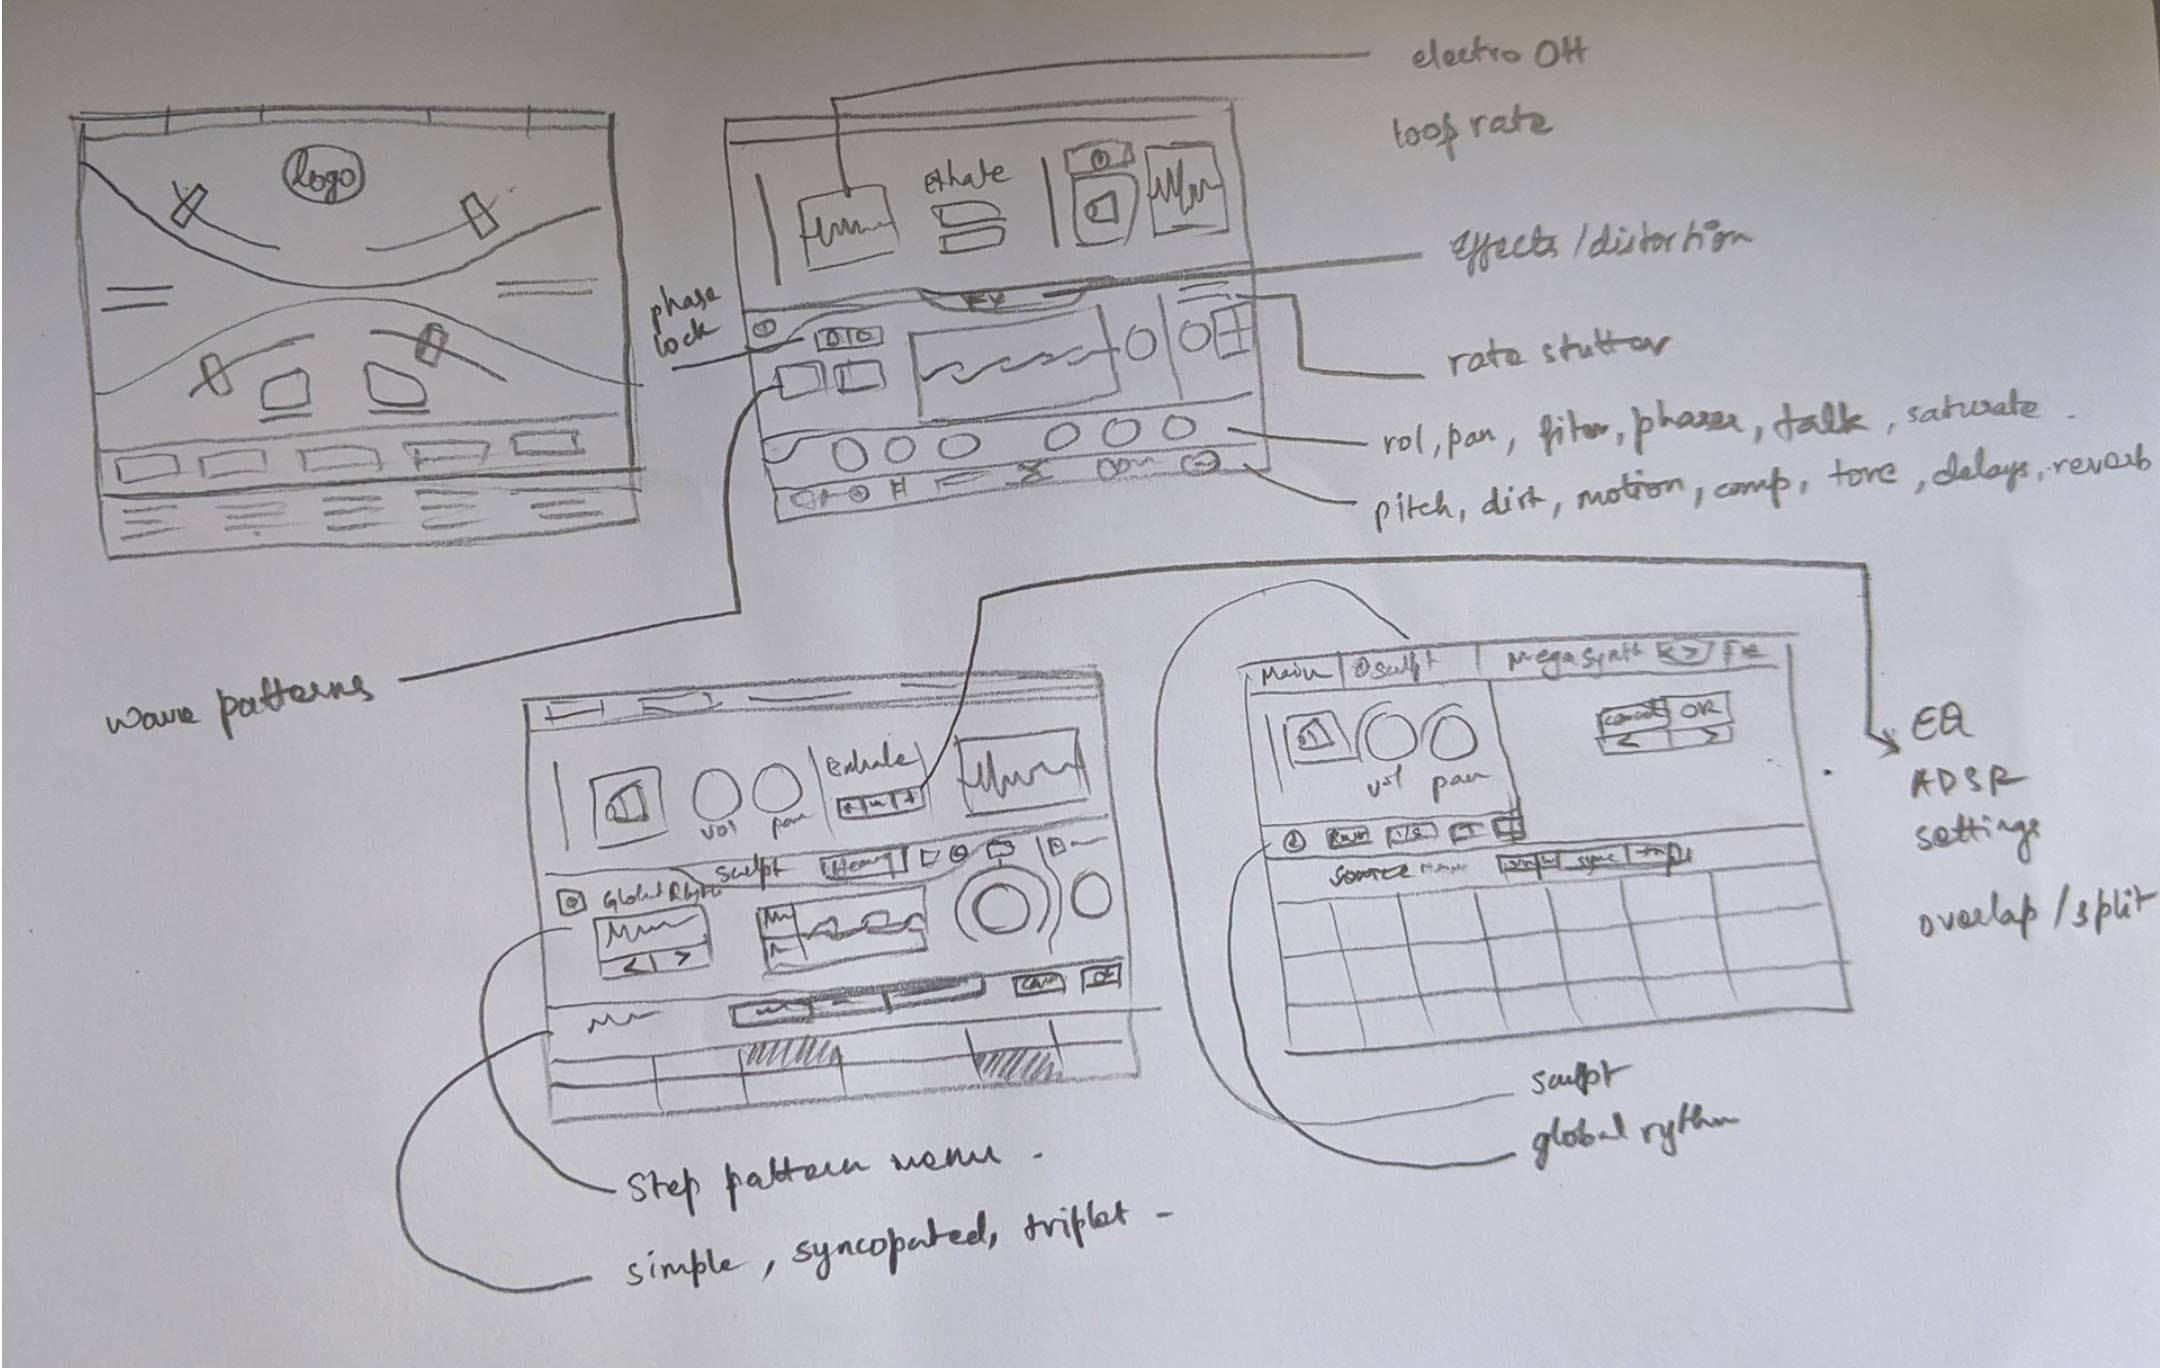 electro OH
loop rate
logo
Exhale
Effects/distortion
phase
lock
rate stutter
vol, pan, filter, phaser, talk, saturate.
pitch, dirt, motion, comp, tone, delays, reverb
wave patterns
Main sculpt Megasynth < >
cancel OK
< >
vol pan
EQ
ADSR
settings
overlap/split
Exhale
vol pan
sculpt
Global Rhy
< >
OK
Source sync
sculpt
global rythm
Step pattern menu -
simple, syncopated, triplet -